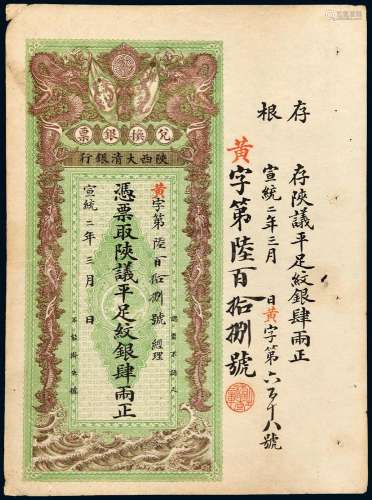 存根
存陝議平足紋銀肆兩正
宣統二年三月 日黄字第六百十八號
黄字第陸百拾捌號
票銀換兌
行銀清大西陝
黄字第陸百拾捌號 經理
憑票取陝議平足紋銀肆兩正
宣統二年三月 日
認票不認人
不能掛失號